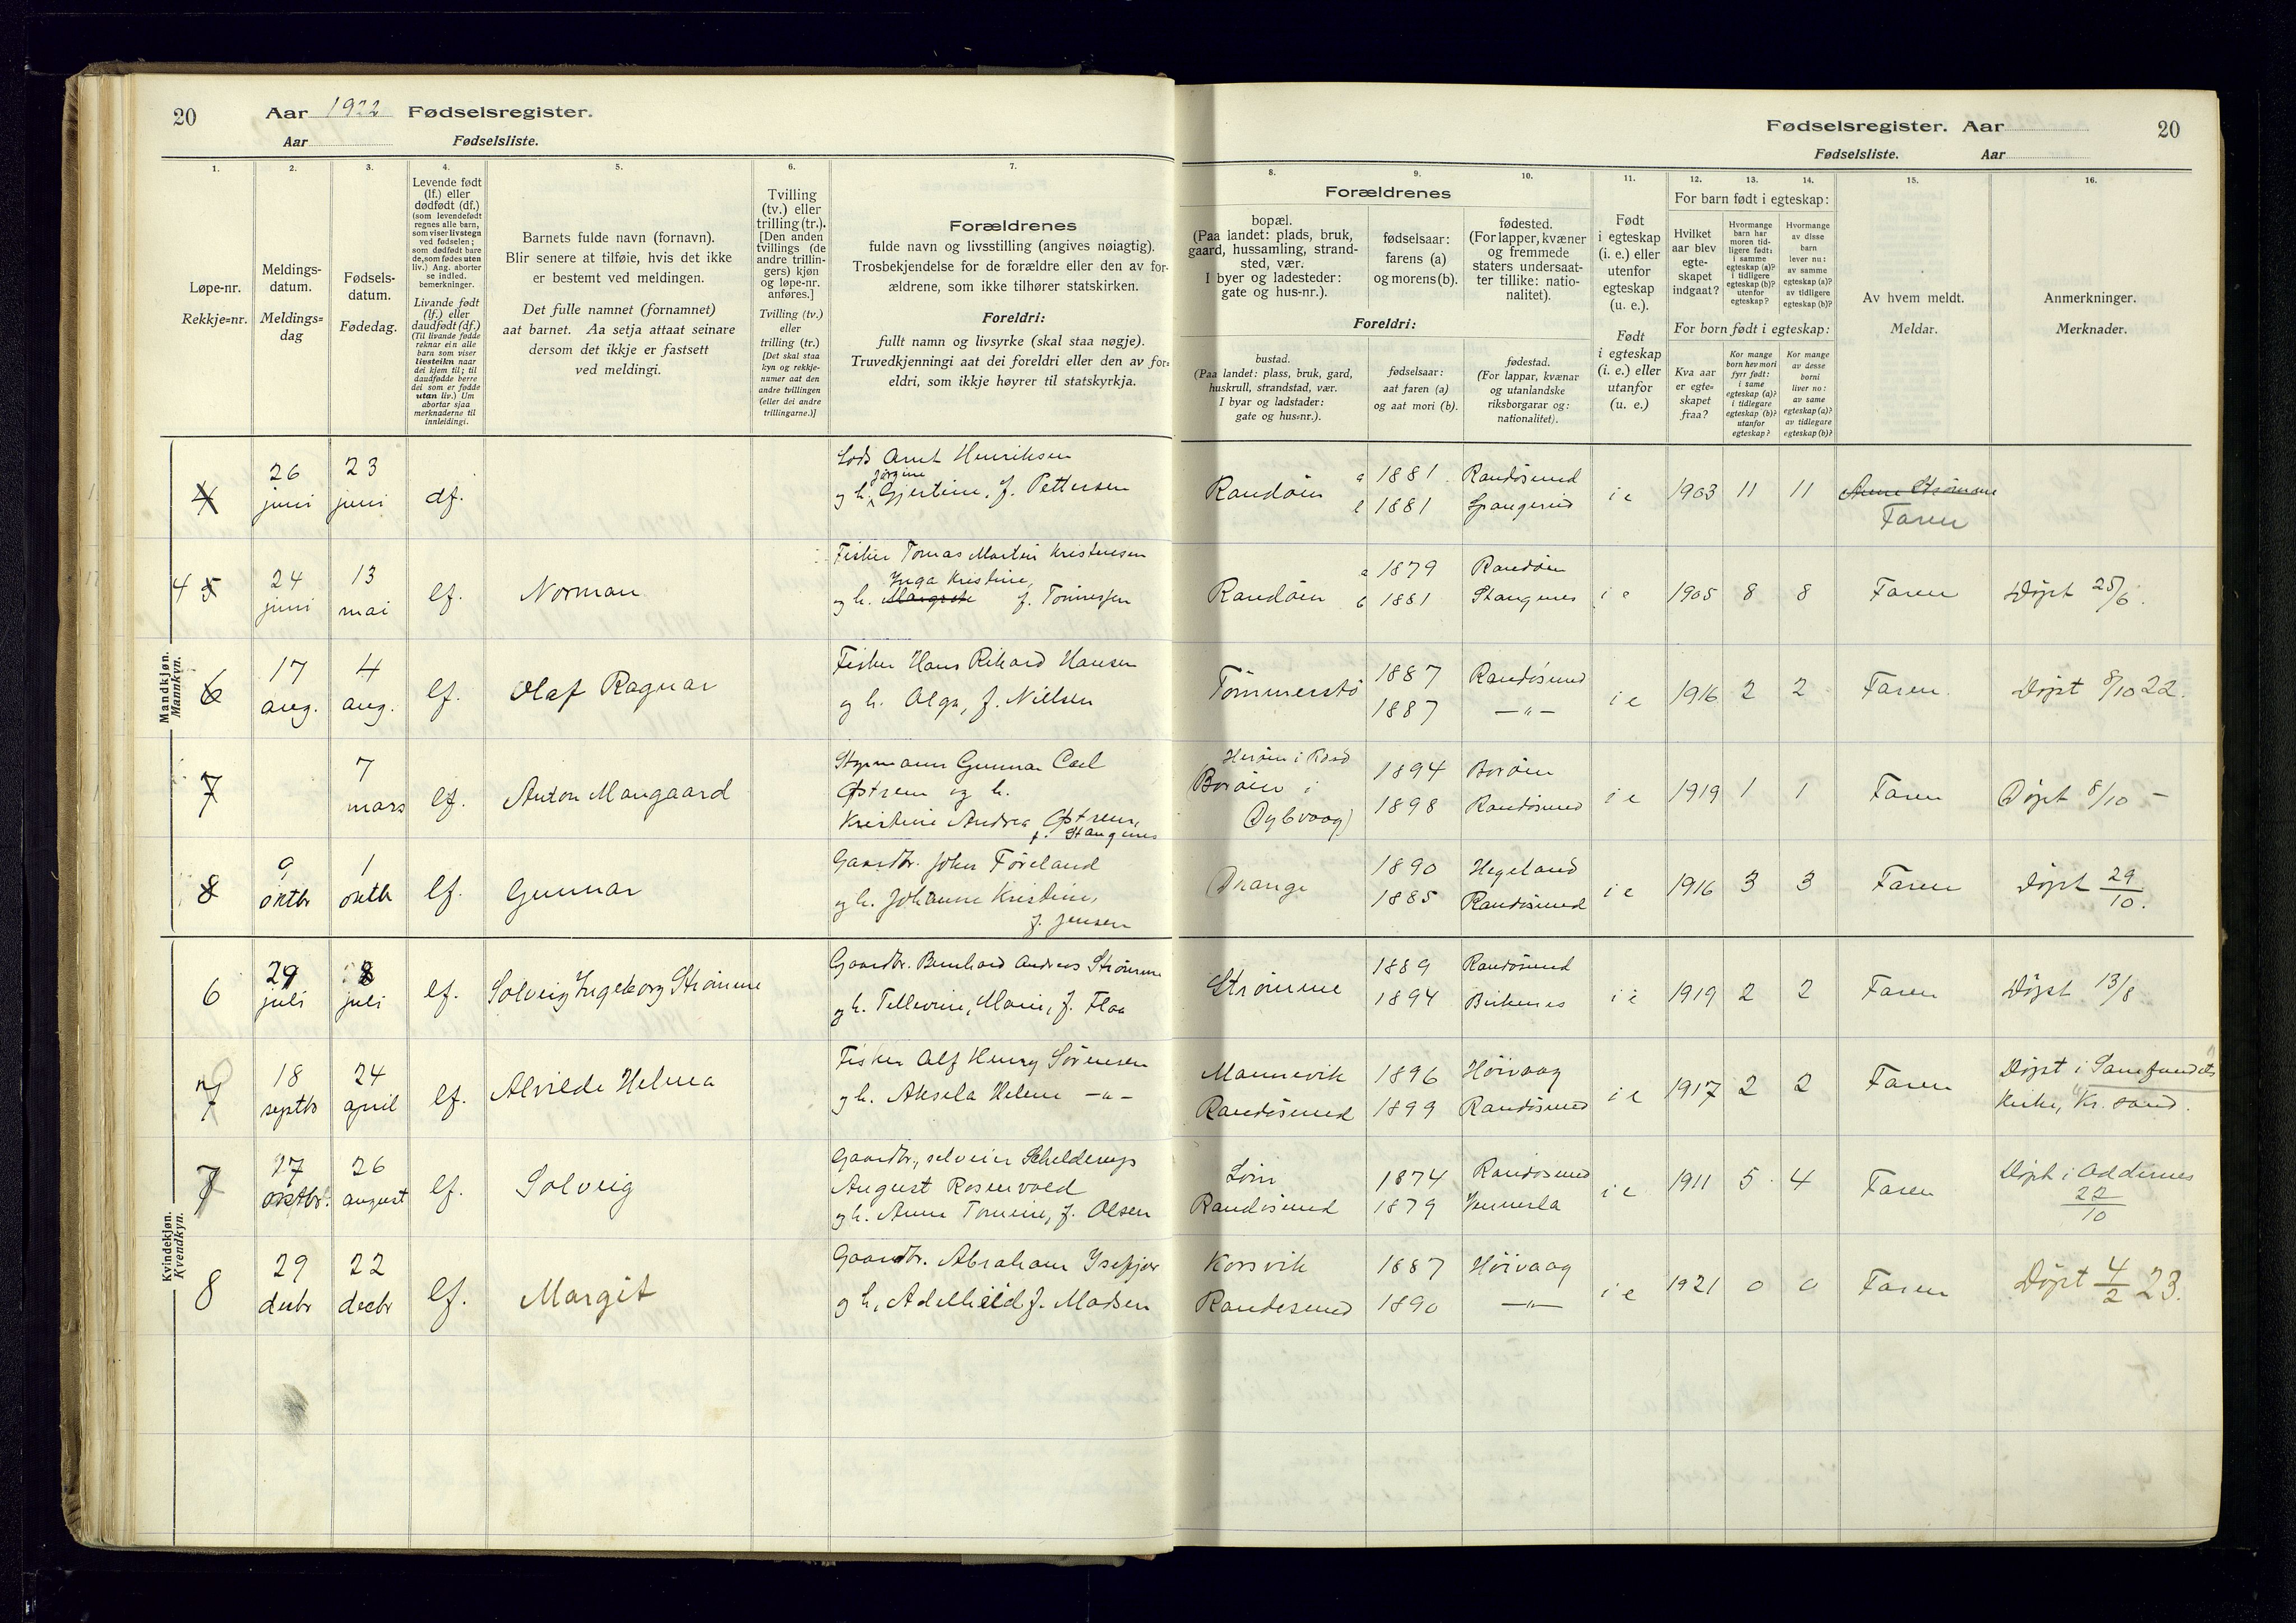 20 Aar 1922 Fødselsregister.
Aar Fødselsliste.
Fødselsregister. Aar 20
Fødselsliste. Aar
1. 2. 3. 4. 5. 6. 7.
8. 9. 10. 11. 12. 13. 14. 15. 16.
Løpe-nr.
Rekkje=nr.
Meldings-
datum.
Meldings=
dag
Fødsels-
datum.
Fødedag.
Levende født
(lf.) eller
dødfødt (df.)
(som levendefødt
regnes alle barn,
som viser livstegn
ved fødselen;
som dødfødt bare
de, som fødes uten
liv.) Ang. aborter
se indled.
bemerkninger.
Livande født
(lf.) eller
daudfødt (df.)
(Til livande fødde
reknar ein alle
barn som viser
livsteikn naar
dei kjem til; til
daudfødde berre
dei som er fødde
utan liv.) Um
abortar sjaa
merknaderne til
innleidingi.
Barnets fulde navn (fornavn).
Blir senere at tilføie, hvis det ikke
er bestemt ved meldingen.
Det fulle namnet (fornamnet)
aat barnet. Aa setja attaat seinare
dersom det ikkje er fastsett
ved meldingi.
Tvilling
(tv.) eller
trilling (tr.).
[Den anden
tvillings (de
andre trillin-
gers) kjøn
og løpe-nr.
anføres.]
Tvilling (tv.)
eller
trilling (tr.)
[Det skal staa
kyn og rekkje-
numer aat den
andre tvillingen
(eller dei andre
trillingarne.)]
Forældrenes
fulde navn og livsstilling (angives nøiagtig).
Trosbekjendelse for de forældre eller den av for-
ældrene, som ikke tilhører statskirken.
Foreldri:
fullt namn og livsyrke (skal staa nøgje).
Truvedkjenningi aat dei foreldri eller den av for=
eldri, som ikkje høyrer til statskyrkja.
Forældrenes
bopæl.
(Paa landet: plads, bruk,
gaard, hussamling, strand-
sted, vær.
I byer og ladesteder:
gate og hus-nr.).
fødselsaar:
farens (a)
og morens (b).
fødested.
(For lapper, kvæner
og fremmede
staters undersaat-
ter tillike: natio-
nalitet).
Foreldri:
bustad.
(Paa landet: plass, bruk, gard,
huskrull, strandstad, vær.
I byar og ladstader:
gate og hus=nr.).
fødselsaar:
aat faren (a)
og aat mori (b).
fødestad.
(For lappar, kvænar
og utanlandske
riksborgarar og:
nationalitet).
Født
i egteskap
(i. e.) eller
utenfor
egteskap
(u. e.).
Født
i egteskap
(i. e.) eller
utanfor
(u. e.)
For barn født i egteskap:
Hvilket
aar blev
egte-
skapet
indgaat?
Hvormange
barn har
moren tid-
ligere født:
i samme
egteskap (a)?
i tidligere
egteskap (b)?
utenfor
egteskap?
Hvormange
av disse
barn
lever nu:
av samme
egteskap (a)?
av tidligere
egteskap (b)?
For born født i egteskap:
Kva aar
er egte=
skapet
fraa?
Kor mange
born hev mori
fyrr født:
i same
egteskap (a)?
i tidlegare
egteskap (b)?
utanfor
egteskap?
Kor mange
av desse
borni
liver no:
av same
egteskap (a)?
av tidlegare
egteskap (b)?
Av hvem meldt.
Meldar.
Anmerkninger.
Merknader.
Mandkjøn.
Mannkyn.
4 26 juni 23 juni df. Lods Arnt Henriksen
og h. Jørgine Gjertine, f. Pettersen
Randøen a 1881 Randøsund
b 1881 Spangereid i e 1903 11 11 Anne Strømme
Faren
4 5 24 juni 13 mai lf. Norman Fisker Tomas Martin Kristensen
og h. Margrete Inga Kristine, f. Tønnessen
Randøen a 1879 Randøen
b 1881 Stangenes i e 1905 8 8 Faren Døpt 25/6.
6 17 aug. 4 aug. lf. Olaf Ragnar Fisker Hans Rikard Hansen
og h. Olga, f. Nielsen
Tømmerstø 1887 Randøsund
1887 —"— i e 1916 2 2 Faren. Døpt 8/10 22.
7 7 mars lf. Anton Mangaard Styrmann Gunnar Carl
Østrem og h.
Kristine Andrea Østrem,
f. Stangenes
Borøen i
Dybvaag) 1894 Borøen
1898 Randøsund i e 1919 1 1 Faren Døpt 8/10 —
8 9 oktbr 1 oktb lf. Gunnar Gaardbr. John Føreland
og h. Johanne Kristine,
f. Jensen
Drange 1890 Hegeland
1885 Randøsund i e 1916 3 3 Faren Døpt 29/10.
Kvindekjøn.
Kvendkyn.
6 29 juli 8 juli lf. Solveig Ingeborg Strømme Gaardbr. Bernhard Andreas Strømme
og h. Tellevine, Marie, f. Flaa
Strømme 1889 Randøsund
1894 Birkenes i e 1919 2 2 Faren Døpt 13/8
7 18 septb 24 april lf. Alvilde Helena Fisker Alf Henry Sørensen
og h. Aksela Helene —"—
Mannevik
Randøsund 1896 Høivaag
1899 Randøsund i e 1917 2 2 Faren Døpt i Samfundets
kirke, Kr.sand.
7 27 oktbr. 26 august lf. Solveig Gaardbr., selveier Schelderup
August Rosenvold
og h. Anne Tomine, f. Olsen
Randøsund 1874 Randøsund
1879 Vennesla i e 1911 5 4 Faren Døpt i Oddernes
22/10
8 29 decbr 22 decbr lf. Margit Gaardbr. Abraham Isefjær
og h, Adelheid f. Madsen
Korsvik
Randesund 1887 Høivaag
1890 —"— i e 1921 0 0 Faren Døpt 4/2 23.